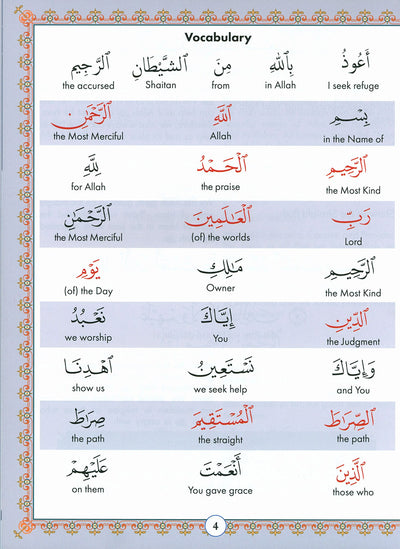 Vocabulary
أَعُوذُ بِٱللَّهِ مِنَ ٱلشَّيْطَانِ ٱلرَّجِيمِ
I seek refuge in Allah from Shaitan the accursed
بِسْمِ ٱللَّهِ ٱلرَّحْمَٰنِ
in the Name of Allah the Most Merciful
ٱلرَّحِيمِ ٱلْحَمْدُ لِلَّهِ
the Most Kind the praise for Allah
رَبِّ ٱلْعَٰلَمِينَ ٱلرَّحْمَٰنِ
Lord (of) the worlds the Most Merciful
ٱلرَّحِيمِ مَٰلِكِ يَوْمِ
the Most Kind Owner (of) the Day
ٱلدِّينِ إِيَّاكَ نَعْبُدُ
the Judgment You we worship
وَإِيَّاكَ نَسْتَعِينُ ٱهْدِنَا
and You we seek help show us
ٱلصِّرَاطَ ٱلْمُسْتَقِيمَ صِرَاطَ
the path the straight the path
ٱلَّذِينَ أَنْعَمْتَ عَلَيْهِمْ
those who You gave grace on them
4